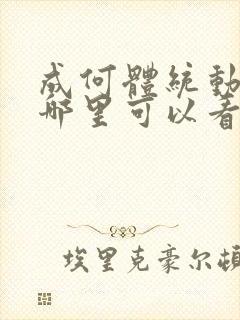 成何體統動
哪里可以看
埃里克豪尔頓